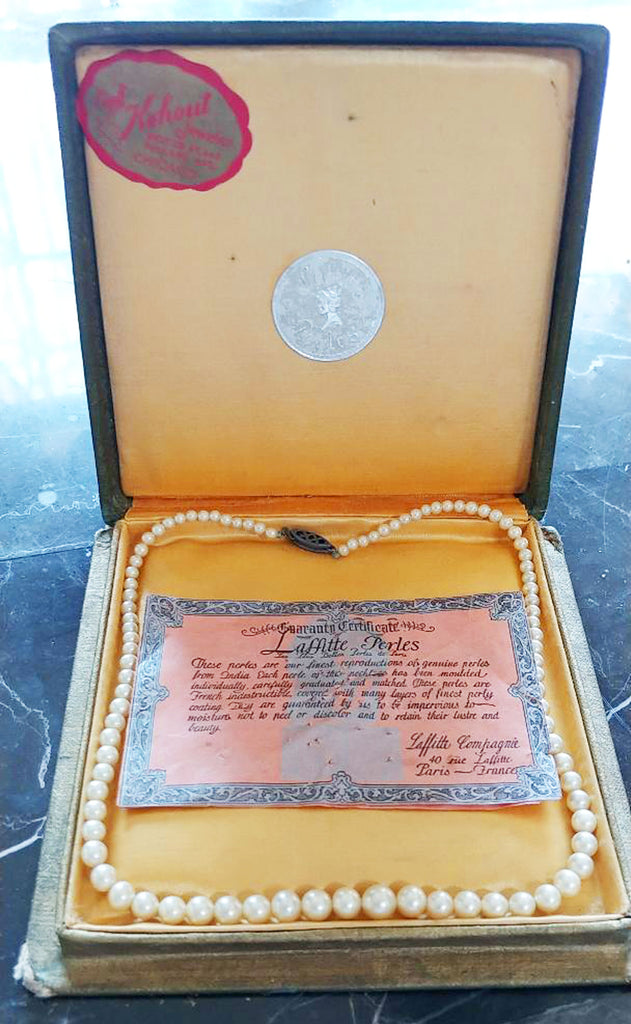 Kohout
Jewelers
Guaranty Certificate
Laffitte Perles
Perles de Paris
These perles are our finest reproductions of genuine perles
from India Each perle of the necklace has been moulded
individually, carefully graduated and matched. These perles are
French indestructible covered with many layers of finest perly
coating. They are guaranteed by us to be impervious to
moisture not to peel or discolor and to retain their lustre and
beauty.
Laffitte Compagnie
40 rue Laffitte
Paris — France